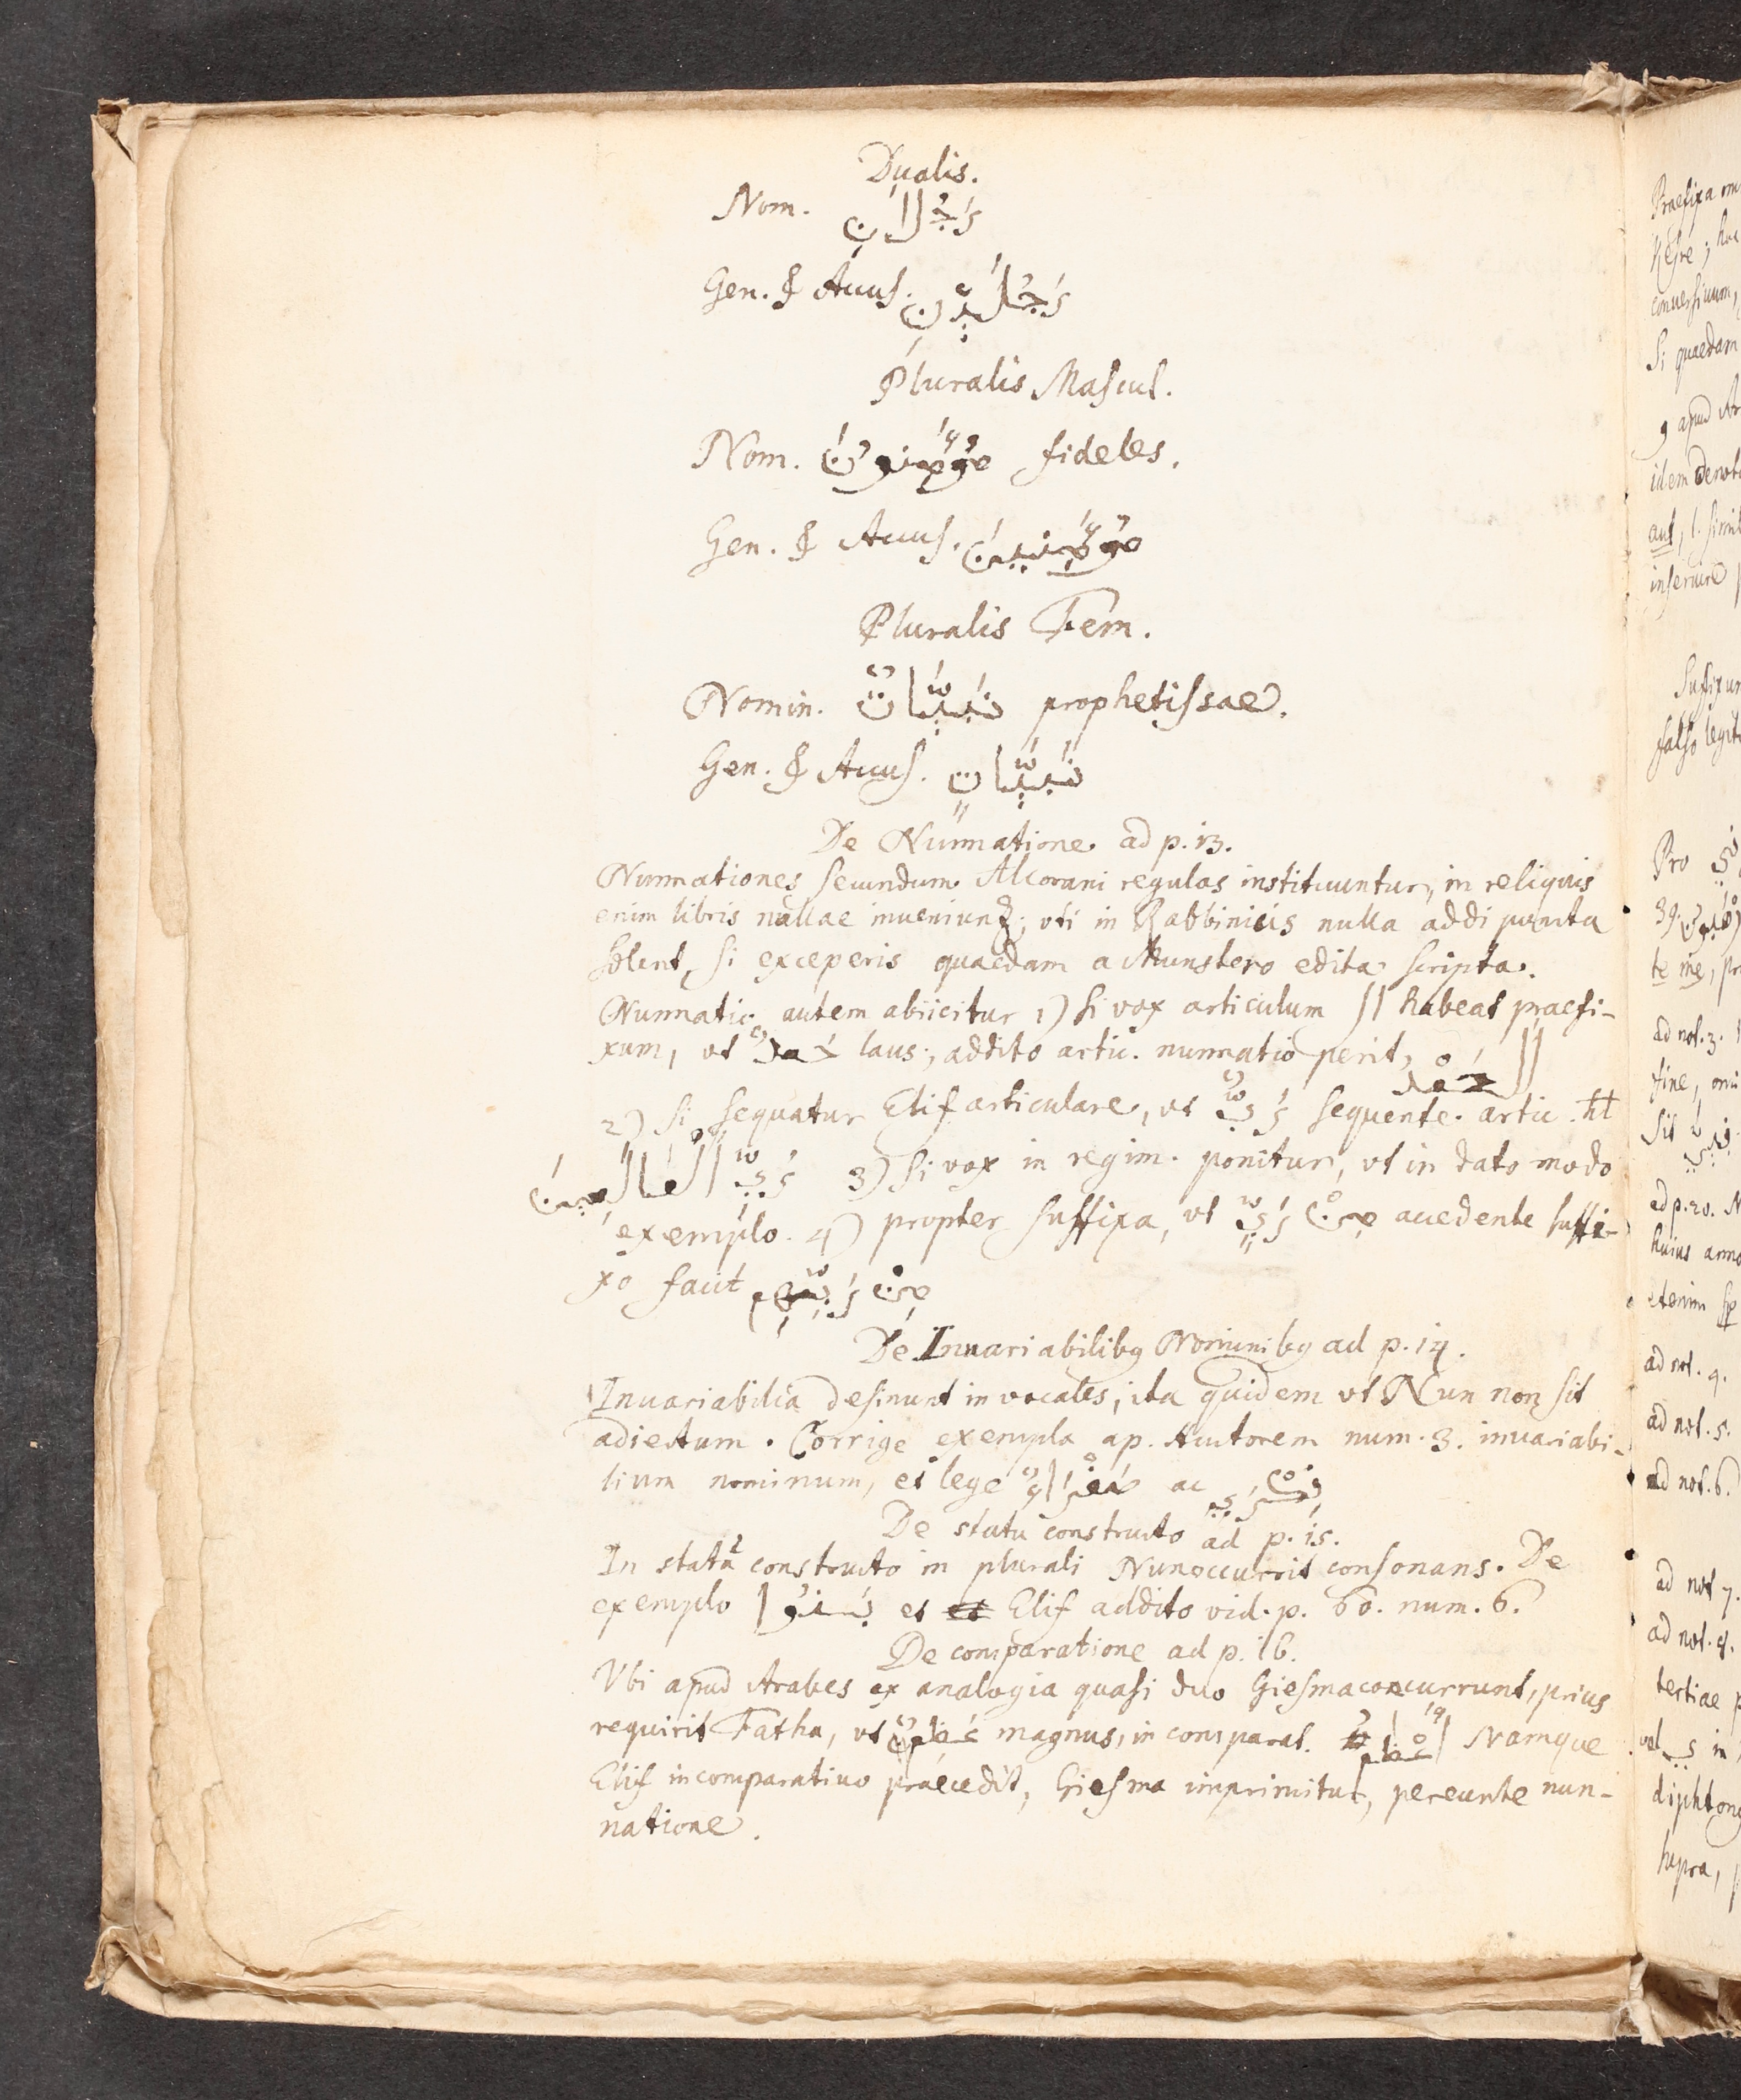 Dualis.
Nom. رَجُلَانِ
Gen. & Accus. رَجُلَيْنِ
Pluralis Mascul.
Nom. مُؤْمِنُونَ fideles.
Gen. & Accus. مُؤْمِنِينَ
Pluralis Fem.
Nomin. نَبِيَّاتٌ prophetissae.
Gen. & Accus. نَبِيَّاتٍ
De Nunnatione ad p. 13.
Nunnationes secundum Alcorani regulas instituuntur, in reliquis
enim libris nullae inueniunt; vti in Rabbinicis nulla addi puncta
solent, si exceperis quaedam a Munstero edita scripta.
Nunnatio autem abiicitur 1) si vox articulum ال habeat praefi-
xum, vt حَمدٌ laus; addito artic. nunnatio perit, الحَمْدُ
2) Si sequatur Elif articulare, vt رَبٌّ sequente artic. fit
رَبُّ العَالَمِينَ 3) Si vox in regim. ponitur, vt in dato modo
exemplo. 4) propter suffixa, vt مِنْ رَبٍّ accedente suffi-
xo facit مِنْ رَبِّهِمْ
De Inuariabilibꝫ Nominibꝫ ad p. 14.
Inuariabilia desinunt in vocales, ita quidem vt Nun non sit
adiectum. Corrige exempla ap. Auctorem num. 3. inuariabi-
lium nominum, et lege صَفْرَاءُ ac ذِكْرَي
De statu constructo ad p. 15.
In statu constructo in plurali Nun occurrit consonans. De
exemplo بَنُوا et Elif addito vid. p. 60. num. 6.
De comparatione ad p. 16.
Vbi apud Arabes ex analogia quasi duo Giesma concurrunt, prius
requirit Fatha, vt عَظِيمٌ magnus, in comparat. أَعْظَمُ Namque
Elif in comparatiuo praecedit, Giesma imprimitur, pereunte nun-
natione.
Praefixa
Kesre; hac
conuersiuum,
Si quaedam
9 apud Ar
idem denot
aut, l. simil
inseruire
Suffixum
falso legit
Pro
39.
te me, pr
ad not. 3.
fine, omi
Sit
ad p. 20. N
huius anno
etenim
ad not. 4.
ad not. 5.
ad not. 6.
ad not 7.
ad not. 8.
tertiae p
vel ي in
diphtong
supra,